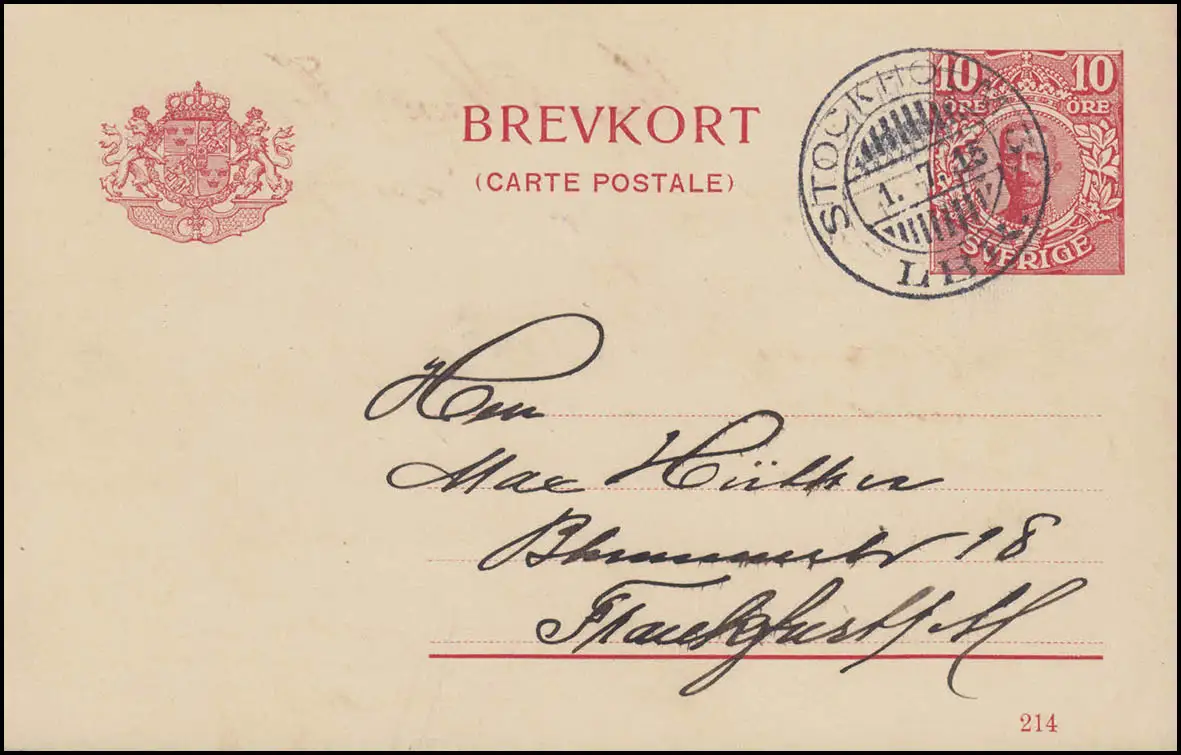 BREVKORT
(CARTE POSTALE)
10 10
ÖRE ÖRE
SVERIGE
STOCKHOLM
1. 7. 15
LBR.
Herrn
Max Hütker
Blumenstr 18
Frankfurt/M
214